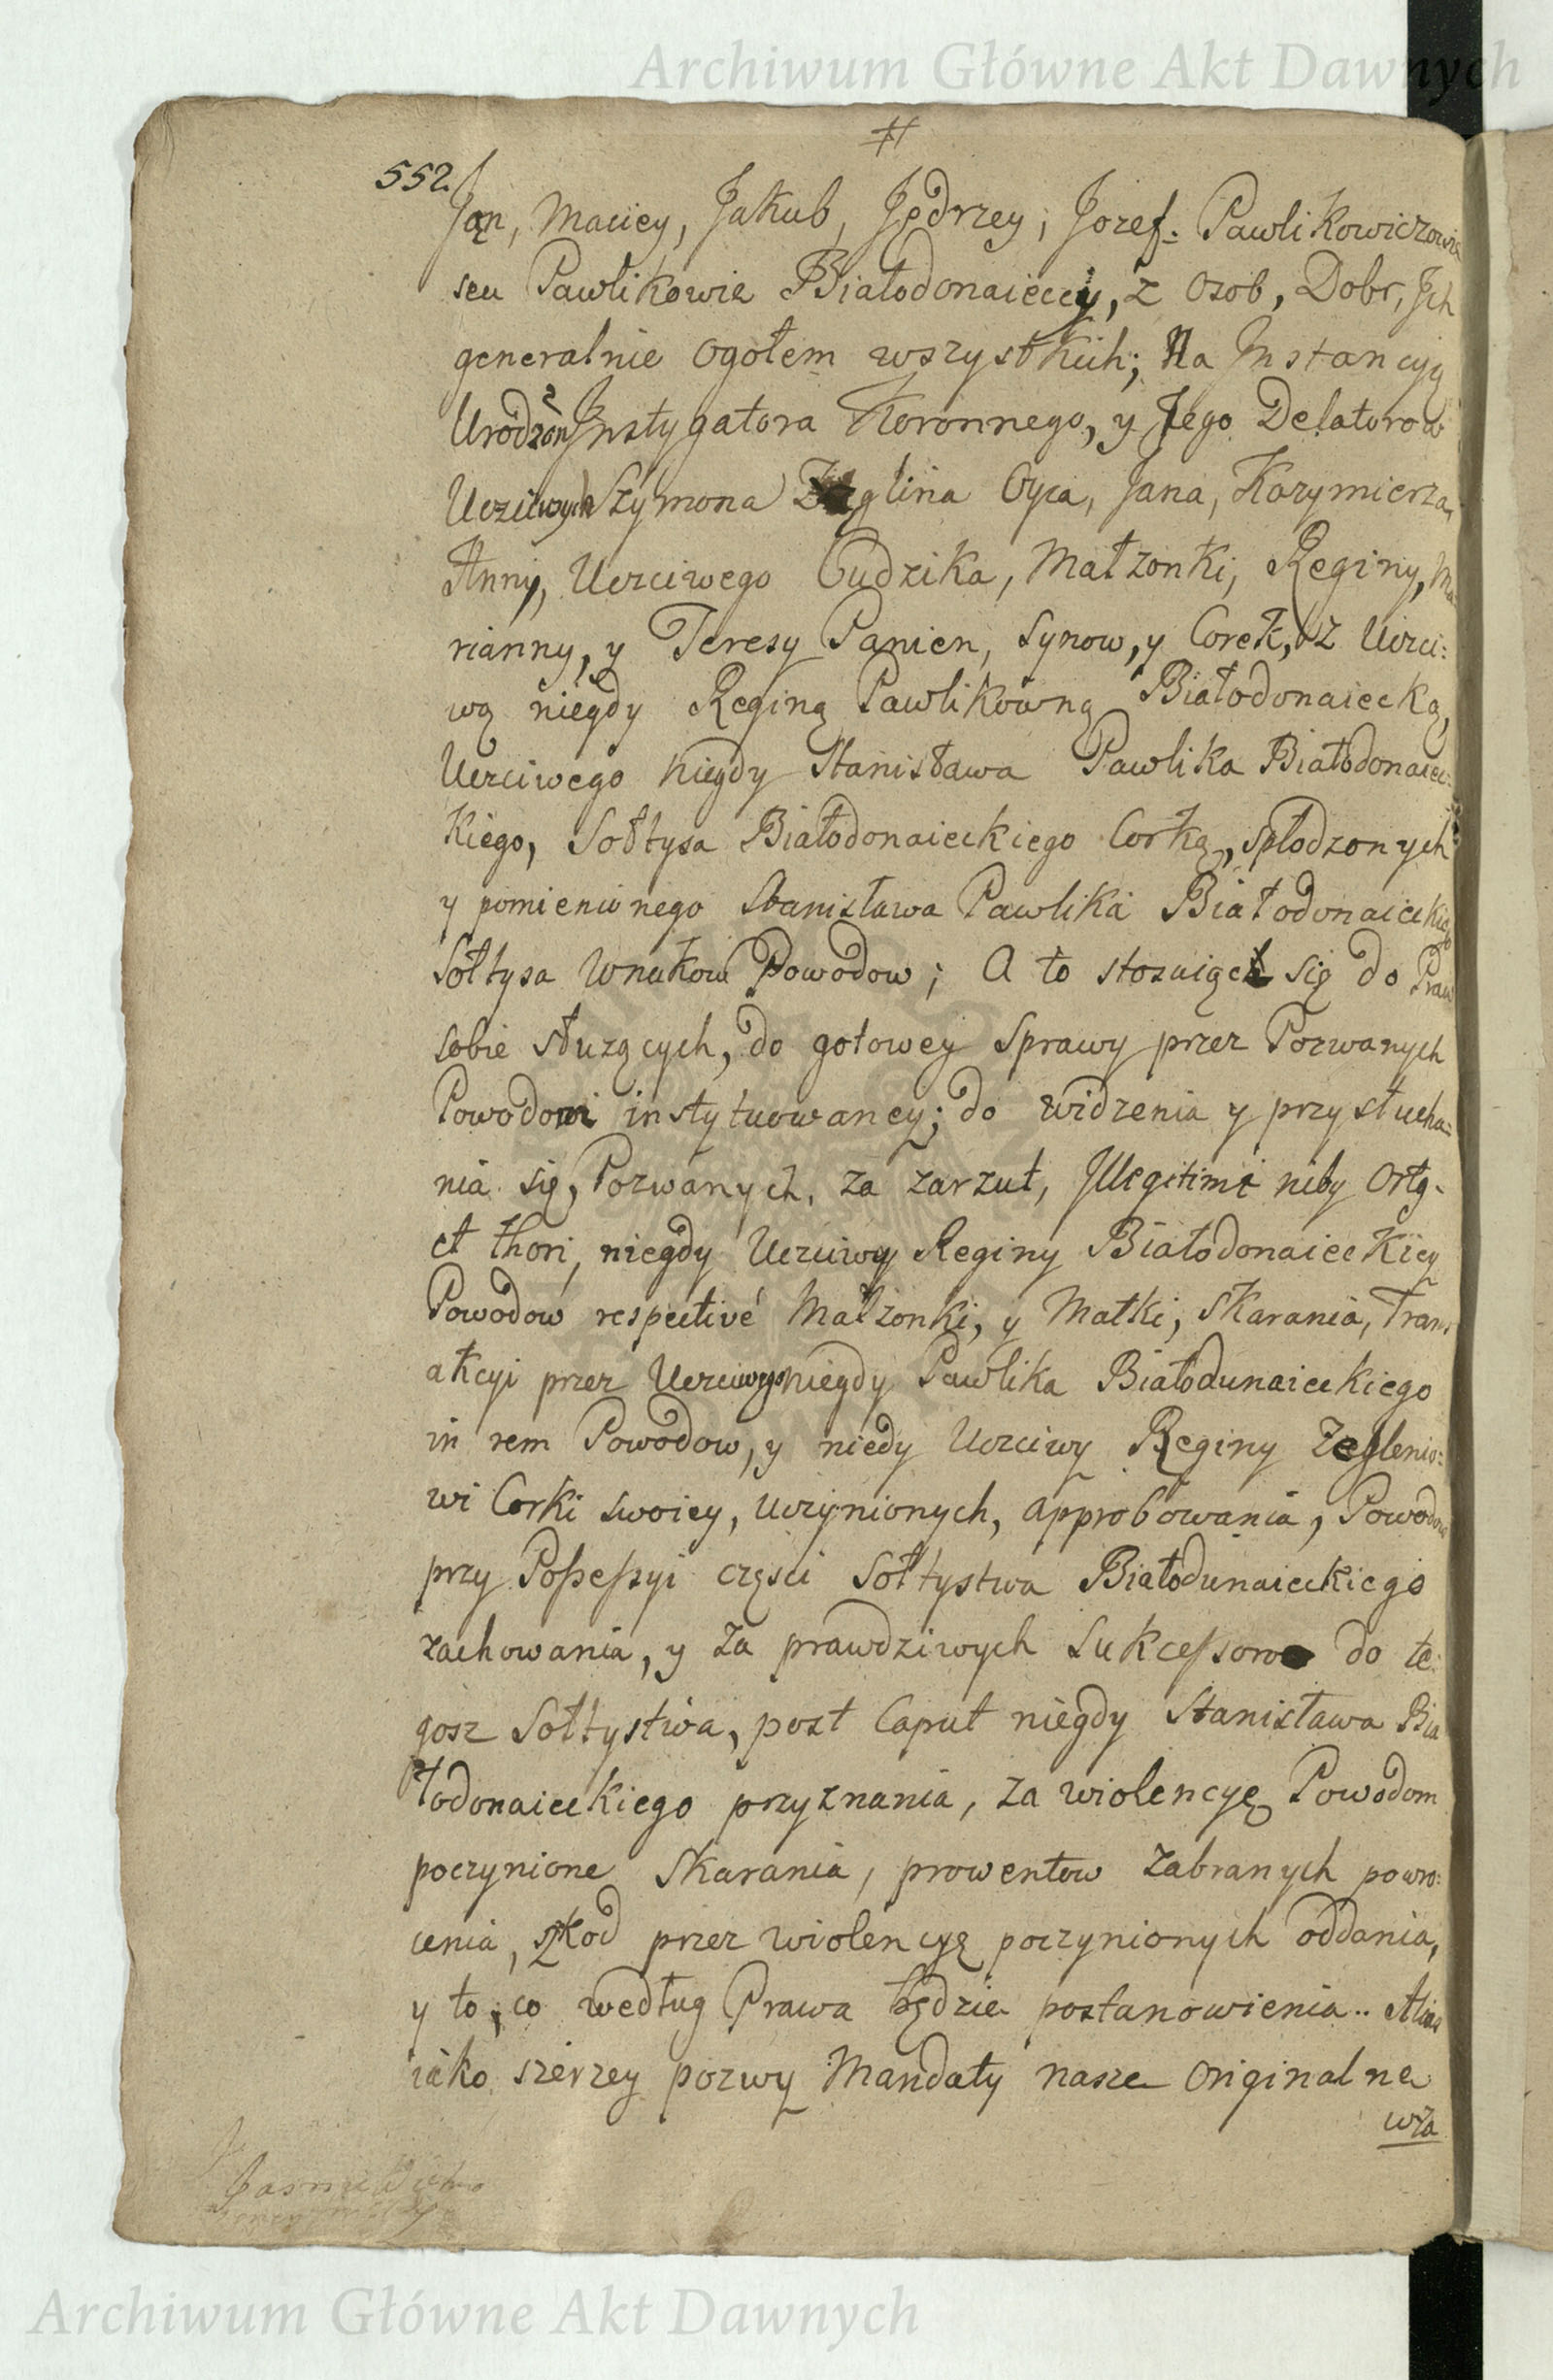 Archiwum Główne Akt Dawnych
#
552
Jan, Maciey, Jakub, Jędrzey, Jozef: Pawlikowiczowie
seu Pawlikowie Białodonaieccy, z Osob, Dobr, Jch
generalnie ogołem wszystkich; Na Jnstancyą
Urodzon Jnstygatora Koronnego, y Jego Delatorow
Uczciwych Szymona Zeglina Oyca, Jana, Kazymierza,
Anny, Uczciwego Cudzika, Małzonki, Reginy, Ma
rianny, y Teresy Panien, Synow, y Corek, z Uczci:
wą niegdy Reginą Pawlikowną Białodonaiecką,
Uczciwego niegdy Stanisława Pawlika Białodonaiec:
kiego, Sołtysa Białodonaieckiego Corką, spłodzonych
y pomienionego Stanisława Pawlika Białodonaieckiego
Sołtysa Wnukow Powodow; A to stosuiąc się do Praw
sobie słuzących, do gotowey Sprawy przez Pozwanych
Powodowi instytuowaney; do widzenia y przysłucha:
nia się, Pozwanych, za zarzut, Jllegitimi niby Ortg.
et thori, niegdy Uczciwy Reginy Białodonaieckiey
Powodow respectivé Małzonki, y Matki, skarania, Trans
akcyi przez Uczciwego niegdy Pawlika Białodunaieckiego
in rem Powodow, y niedy Uczciwy Reginy Zeglenio:
wi Corki swoiey, uczynionych, approbowania, Powodow
przy Possessyi części Sołtystwa Białodunaieckiego
zachowania, y za prawdziwych Sukcessorow do te:
gosz Sołtystwa, post Caput niegdy Stanisława Bia
łodonaieckiego przyznania, za wiolencyę Powodom
poczynione skarania, prowentow zabranych powro:
cenia, szkod przez wiolencyę poczynionych oddania,
y to, co według Prawa będzie postanowienia.. Alias
iako szerzey pozwy Mandaty nasze Originalne
wza
Archiwum Główne Akt Dawnych